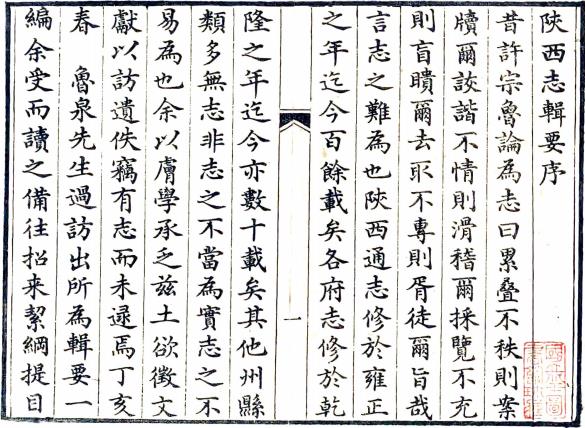 陝西志輯要序
昔許宗魯論為志曰累疊不秩則案
牘爾詼諧不情則滑稽爾採覽不充
則盲瞶爾去取不專則胥徒爾旨哉
言志之難為也陝西通志修於雍正
之年迄今百餘載矣各府志修於乾
一
隆之年迄今亦數十載矣其他州縣
類多無志非志之不當為實志之不
易為也余以膚學承乏兹土欲徵文
獻以訪遺佚竊有志而未逮焉丁亥
春　魯泉先生過訪出所為輯要一
編余受而讀之備往招来絜綱提目